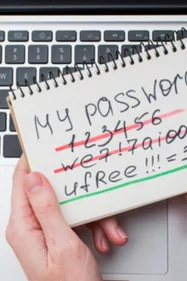 MY PASSWOR
123456
we7!7aioo
ufRee!!!==